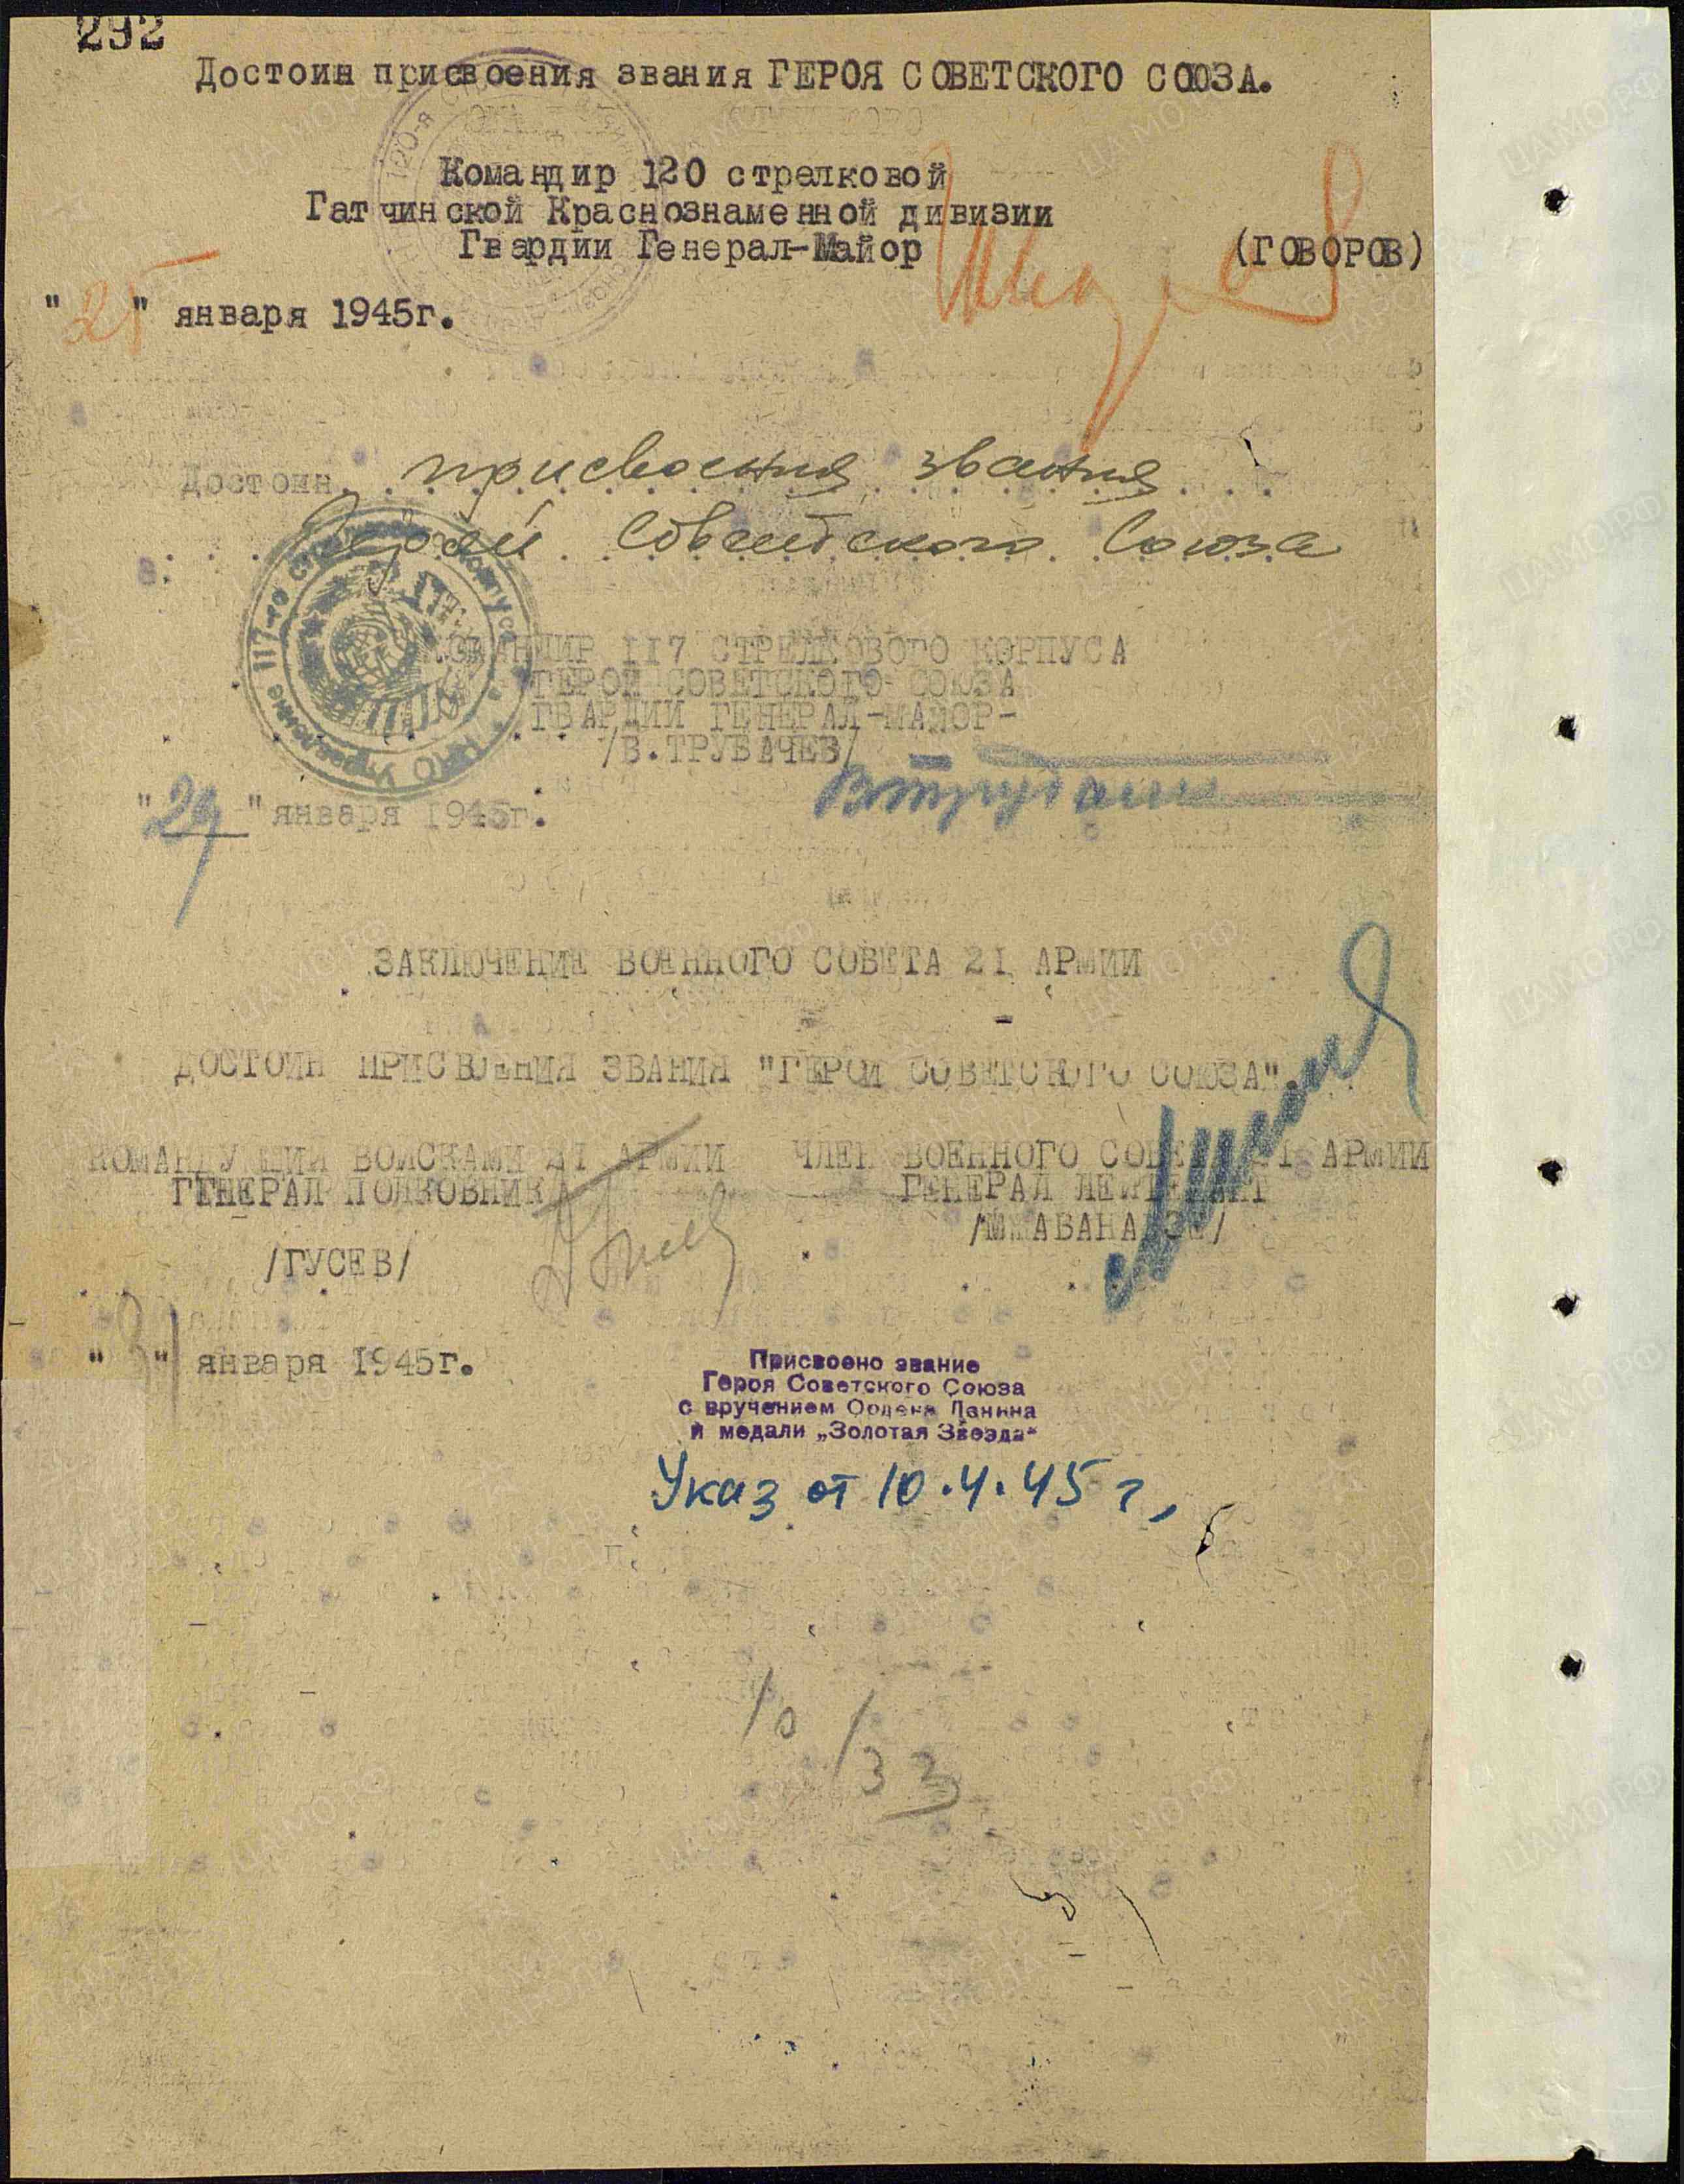 292
Достоин присвоения звания ГЕРОЯ СОВЕТСКОГО СОЮЗА.
Командир 120 стрелковой
Гатчинской Краснознаменной дивизии
Гвардии Генерал-Майор (ГОВОРОВ)
"25" января 1945г.
Достоин присвоения звания
Герой Советского Союза
КОМАНДИР 117 СТРЕЛКОВОГО КОРПУСА
ГЕРОЙ СОВЕТСКОГО СОЮЗА
ГВАРДИИ ГЕНЕРАЛ-МАЙОР-
/В.ТРУБАЧЕВ/
"29" января 1945г.
ЗАКЛЮЧЕНИЕ ВОЕННОГО СОВЕТА 21 АРМИИ
ДОСТОИН ПРИСВОЕНИЯ ЗВАНИЯ "ГЕРОЙ СОВЕТСКОГО СОЮЗА".
КОМАНДУЮЩИЙ ВОЙСКАМИ 21 АРМИИ ЧЛЕН ВОЕННОГО СОВЕТА 21 АРМИИ
ГЕНЕРАЛ ПОЛКОВНИК ГЕНЕРАЛ ЛЕЙТЕНАНТ
/МЖАВАНАДЗЕ/
/ГУСЕВ/
"31" января 1945г.
Присвоено звание
Героя Советского Союза
с вручением Ордена Ленина
и медали „Золотая Звезда"
Указ от 10.4.45 г,
10/33